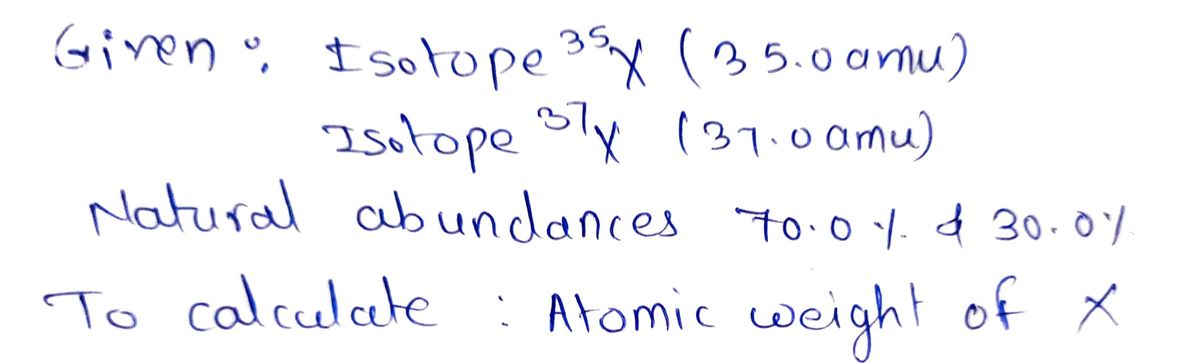 Given : Isotope ³⁵X (35.0 amu)
Isotope ³⁷X (37.0 amu)
Natural abundances 70.0 % & 30.0%
To calculate : Atomic weight of X